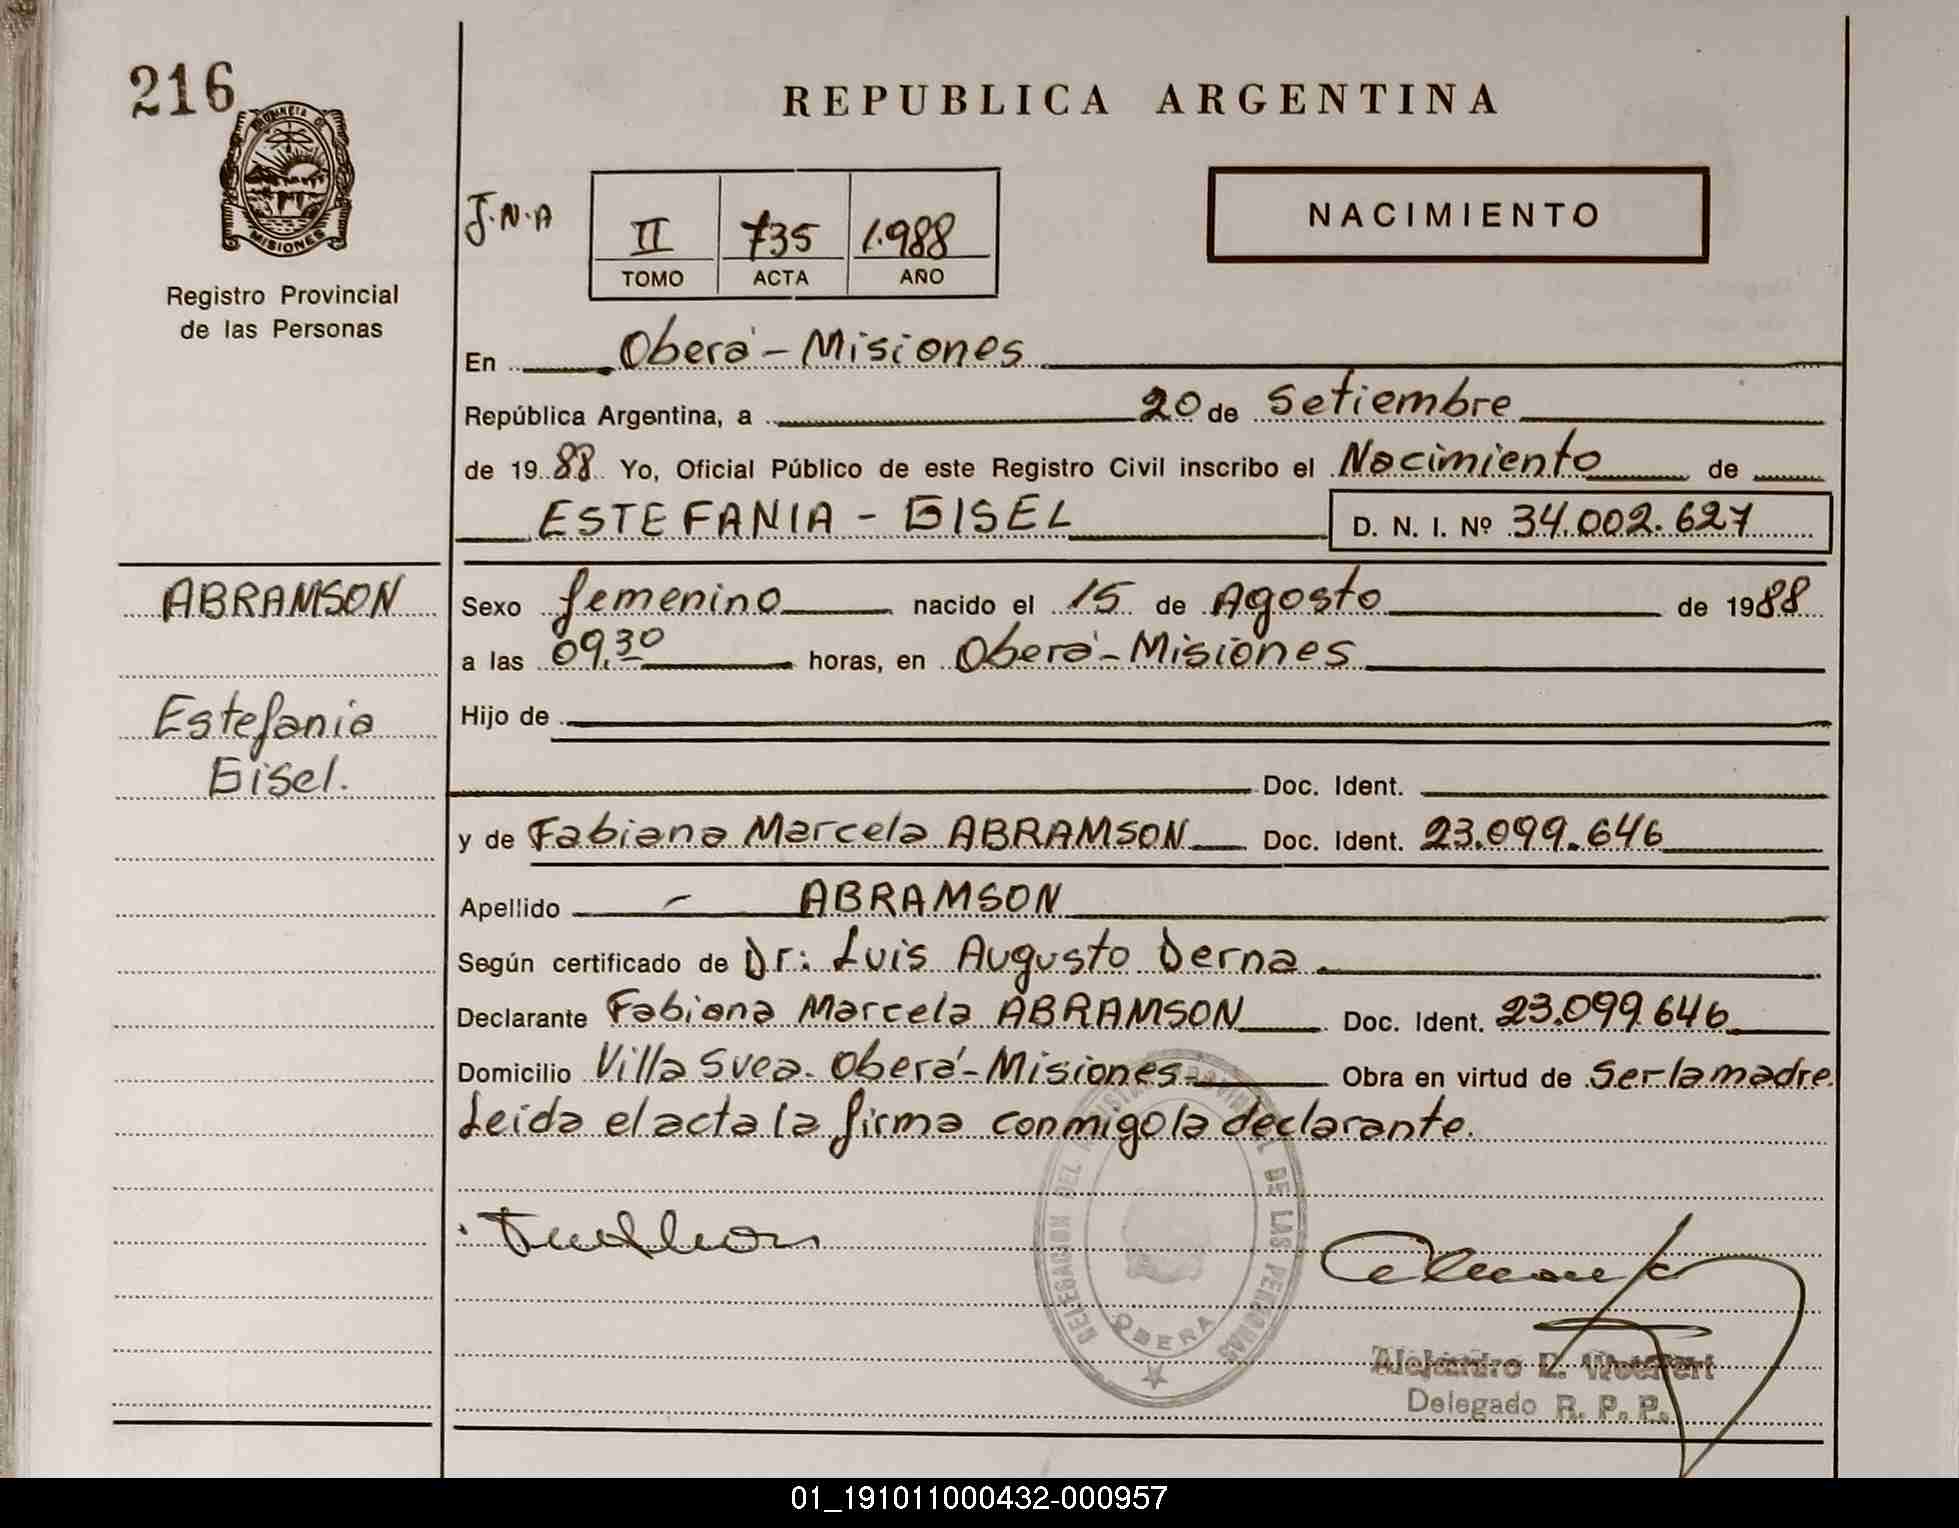 216
PROVINCIA DE
MISIONES
Registro Provincial
de las Personas
REPUBLICA ARGENTINA
J.N.A
II 735 1.988
TOMO ACTA AÑO
NACIMIENTO
En Oberá - Misiones
República Argentina, a 20 de Setiembre
de 1988 Yo, Oficial Público de este Registro Civil inscribo el Nacimiento de
ESTEFANIA - GISEL D. N. I. Nº 34.002.627
ABRAMSON
Estefania
Gisel.
Sexo femenino nacido el 15 de Agosto de 1988
a las 09.30 horas, en Oberá - Misiones
Hijo de
Doc. Ident.
y de Fabiana Marcela ABRAMSON Doc. Ident. 23.099.646
Apellido - ABRAMSON
Según certificado de Dr: Luis Augusto Derna
Declarante Fabiana Marcela ABRAMSON Doc. Ident. 23.099.646
Domicilio Villa Svea. Oberá - Misiones - Obra en virtud de Ser la madre.
Leida el acta la firma conmigo la declarante.
DELEGACION DEL REGISTRO PROVINCIAL DE LAS PERSONAS
OBERA
Alejandro E.
Delegado R. P. P.
01_191011000432-000957